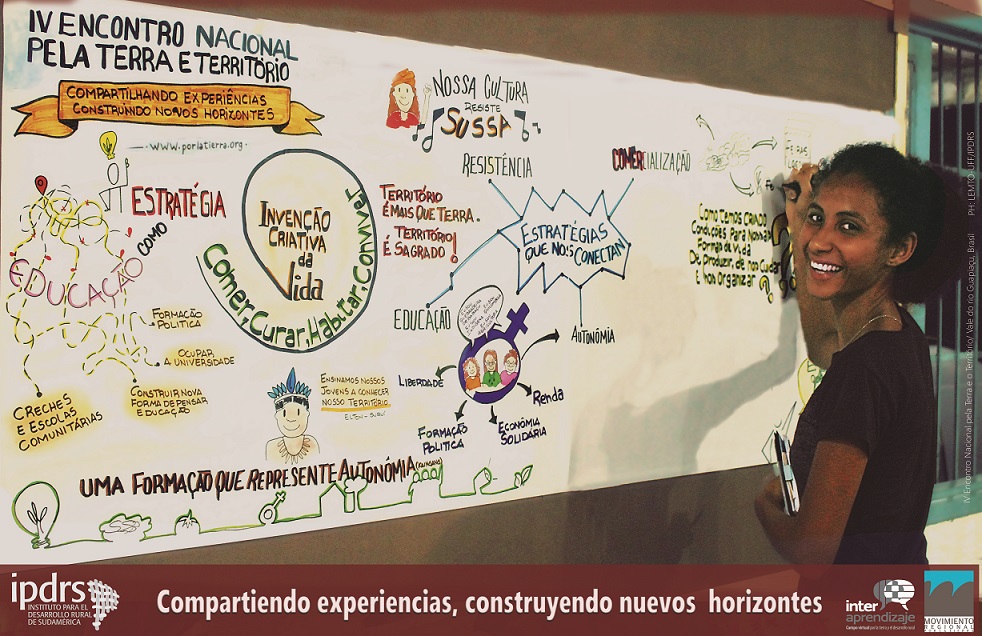 IV ENCONTRO NACIONAL
PELA TERRA E TERRITÓRIO
COMPARTILHANDO EXPERIÊNCIAS
CONSTRUINDO NOVOS HORIZONTES
-www.porlatierra.org-
ESTRATÉGIA
COMO
EDUCAÇÃO
FORMAÇÃO
POLITICA
OCUPAR
A UNIVERSIDADE
CONSTRUIR NOVA
FORMA DE PENSAR
E EDUCAÇÃO
CRECHES
E ESCOLAS
COMUNITÁRIAS
INVENÇÃO
CRIATIVA
da
Vida
Comer, Curar, Habitar, Conviver
NOSSA CULTURA
RESISTE
SUSSA
RESISTÊNCIA
TERRITÓRIO
É MAIS QUE TERRA.
TERRITÓRIO
É SAGRADO!
ESTRATÉGIAS
QUE NOS CONECTAN
COMERCIALIZAÇÃO
COMO TEMOS CRIADO
CONDIÇÕES PARA NOSSAS
FORMAS DE VIDA
DE PRODUZIR, DE NOS CUIDAR
E NOS ORGANIZAR?
EDUCAÇÃO
AUTONOMIA
LIBERDADE
Renda
FORMAÇÃO
POLITICA
ECONÔMIA
SOLIDÁRIA
ENSINAMOS NOSSOS
JOVENS A CONHECER
NOSSO TERRITÓRIO
UMA FORMAÇÃO QUE REPRESENTE AUTONÔMIA
IV Encontro Nacional pela Terra e o Território/ Vale do rio Guapiaçu, Brasil PH: LEMTO-UFF/IPDRS
ipdrs
INSTITUTO PARA EL
DESARROLLO RURAL
DE SUDAMÉRICA
Compartiendo experiencias, construyendo nuevos horizontes
inter
aprendizaje
MOVIMIENTO
REGIONAL